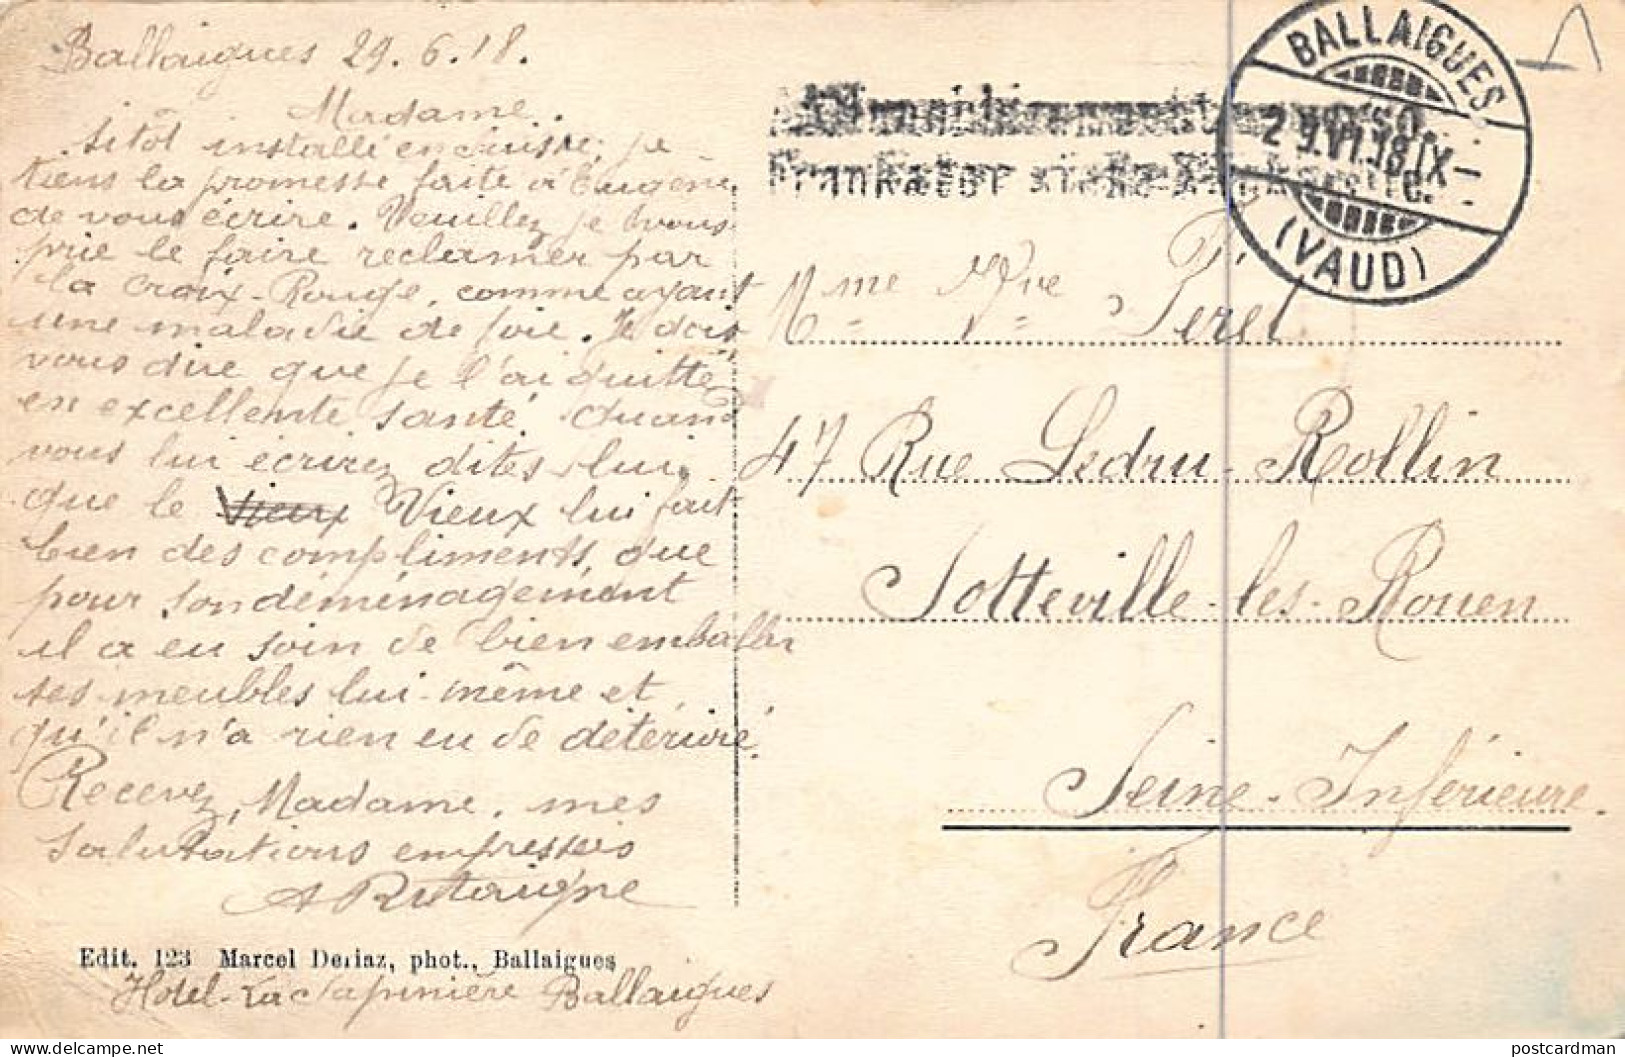 Ballaigues 29.6.18.
Madame.
Sitôt installé en Suisse, je
tiens la promesse faite à Eugène
de vous écrire. Veuillez je vous
prie le faire reclamer par
la Croix-Rouge, comme ayant
une maladie de foie. Je dois
vous dire que je l'ai quitté
en excellente santé. Quand
vous lui écrirez dites-lui
que le Vieux Vieux lui fait
bien des compliments, que
pour son déménagement
il a eu soin de bien emballer
ses meubles lui-même et
qu'il n'a rien eu de déterioré.
Recevez, Madame, mes
salutations empressées
A
Edit. 123 Marcel Deriaz, phot., Ballaigues
Hotel-La Sapinière Ballaigues
BALLAIGUES
29.VI.18.IX
(VAUD)
Mme Vve Pérel
47 Rue Ledru-Rollin
Sotteville-les-Rouen
Seine-Inférieure.
France
postcardman